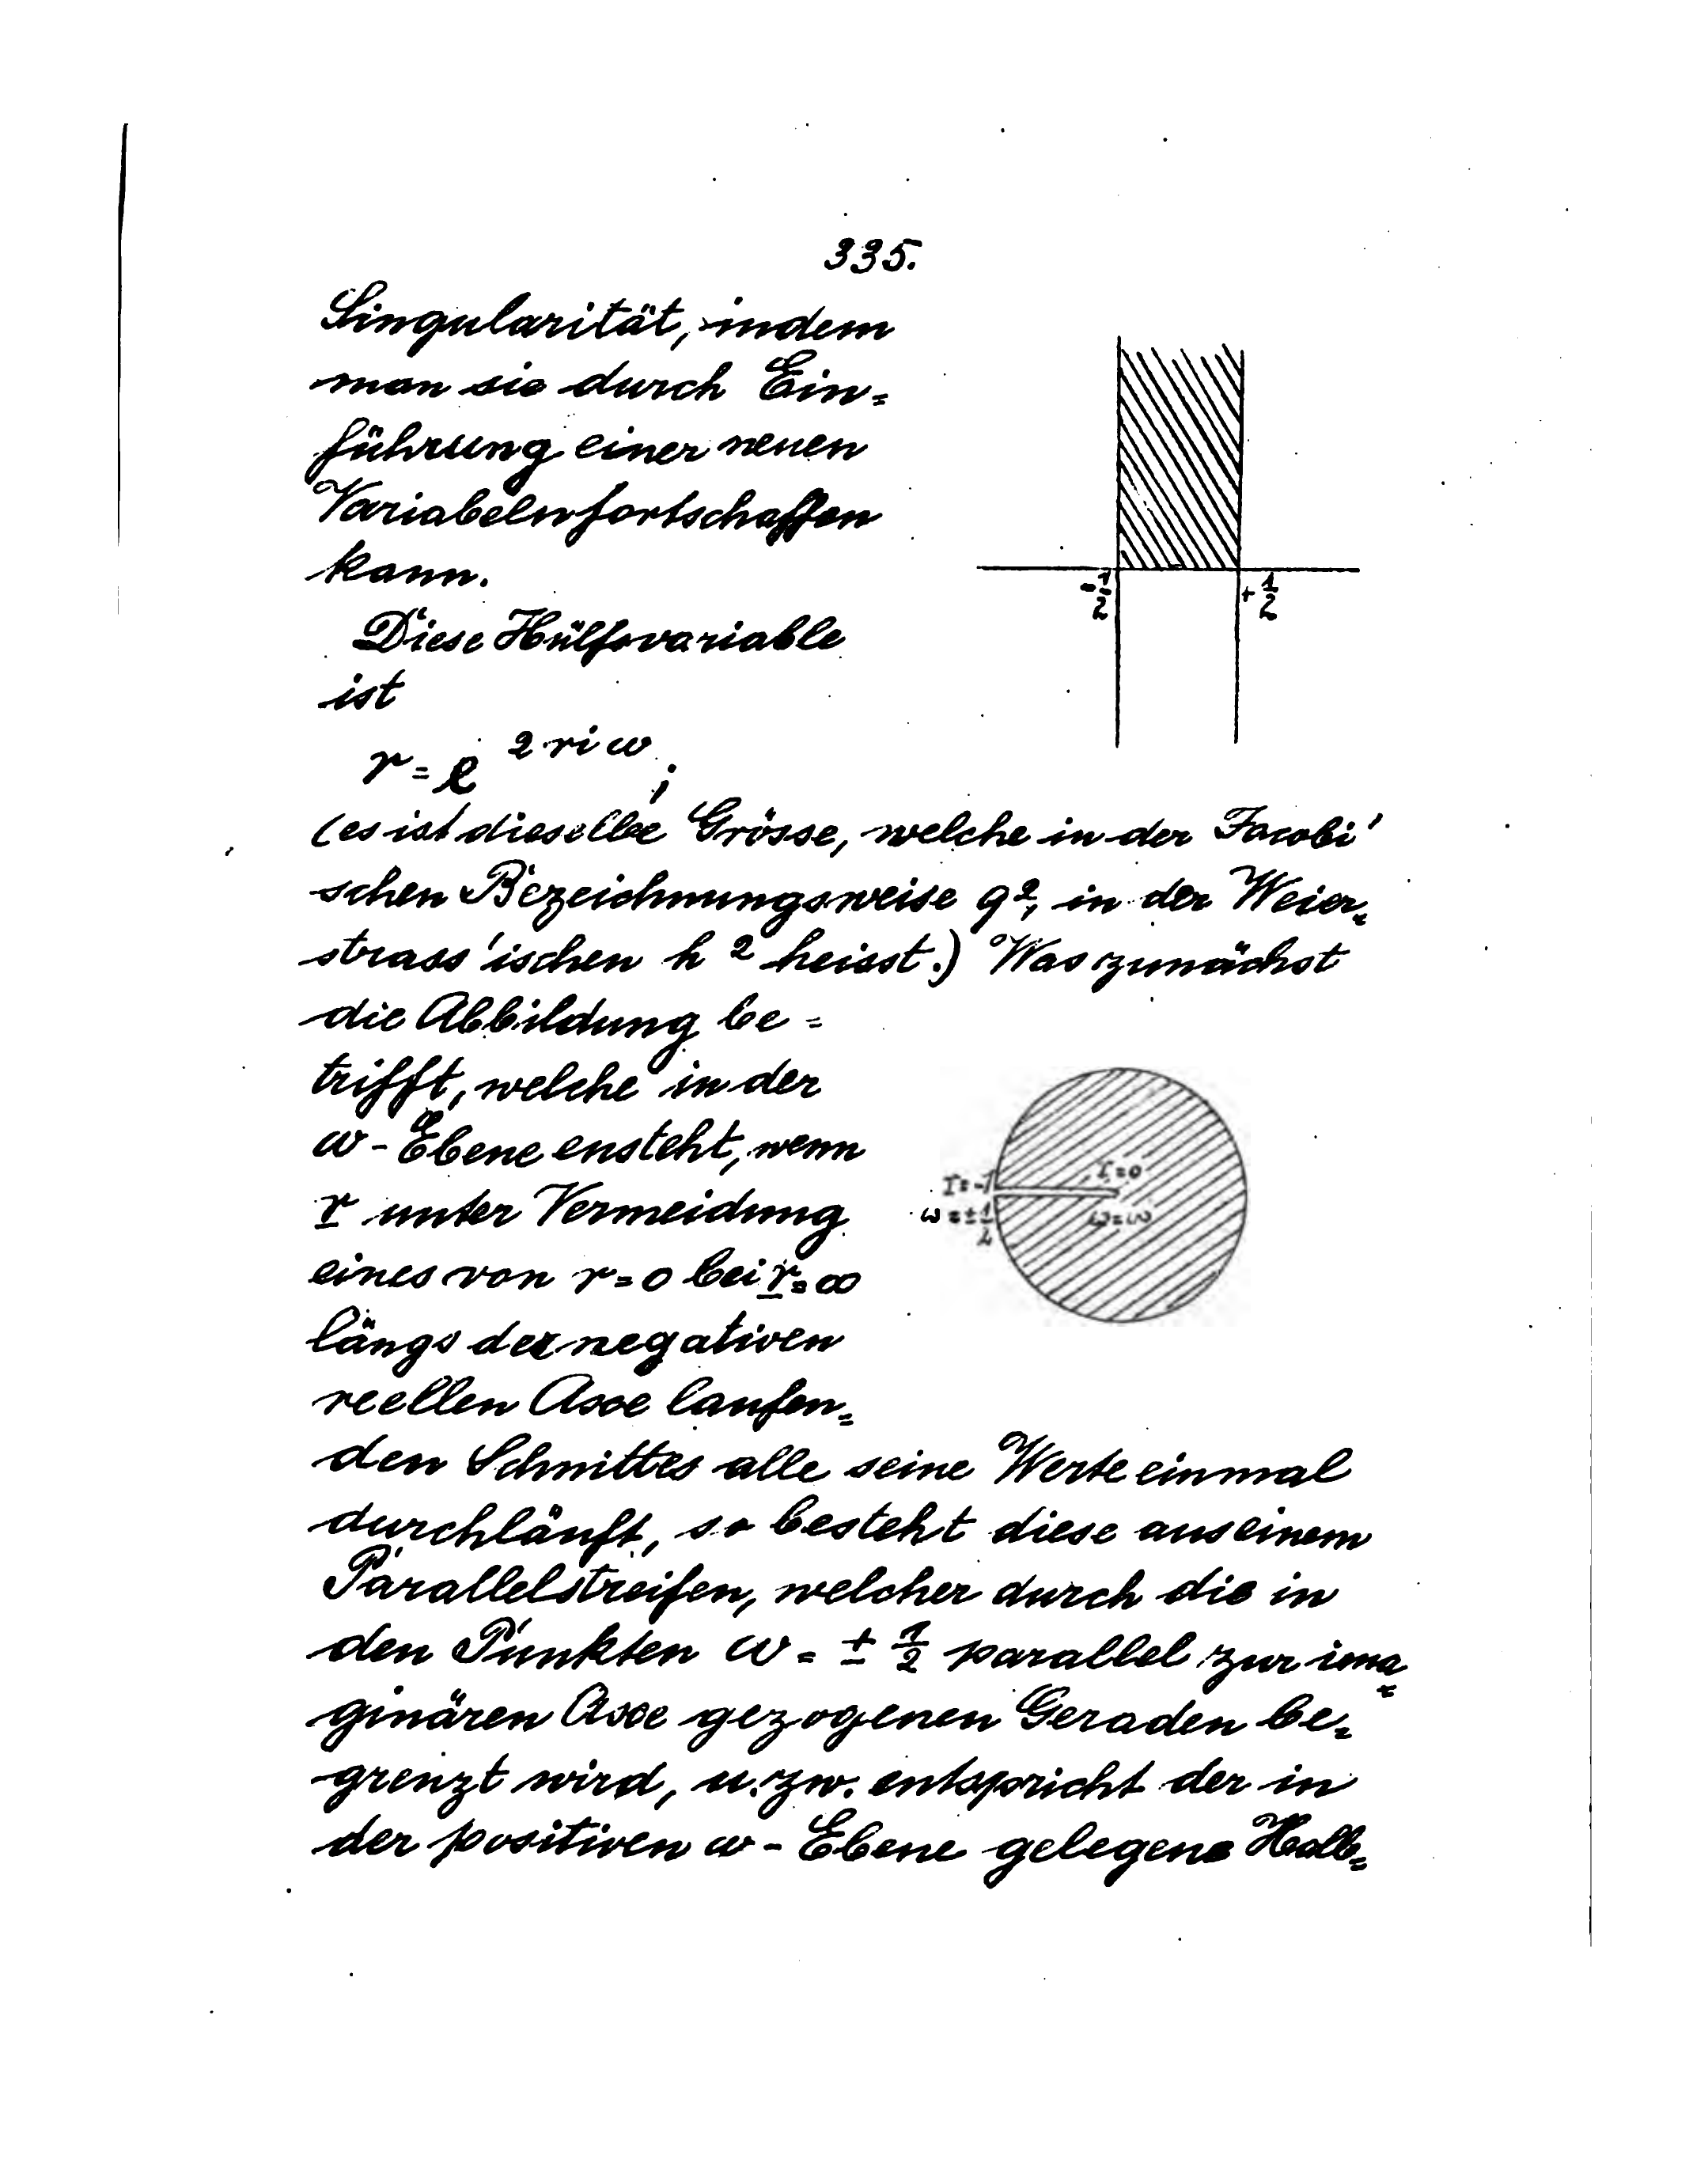 335.
Singularität, indem
man sie durch Ein=
führung einer neuen
Variabeln fortschaffen
kann.
-1/2
+1/2
Diese Hülfsvariable
ist
r = e^{2 ri ω};
(es ist dieselbe Grösse, welche in der Jacobi'
schen Bezeichnungsweise q², in der Weier=
strass'ischen h² heisst.) Was zunächst
die Abbildung be=
trifft, welche in der
ω-Ebene ensteht, wenn
r unter Vermeidung
eines von r=0 bei r=∞
längs der negativen
reellen Axe laufen=
r=-1
r=0
ω=±1/2
ω=∞
den Schnittes alle seine Werte einmal
durchläuft, so besteht diese aus einem
Parallelstreifen, welcher durch die in
den Punkten ω = ± 1/2 parallel zur ima=
ginären Axe gezogenen Geraden be=
grenzt wird, u. zw. entspricht der in
der positiven ω-Ebene gelegene Halb=